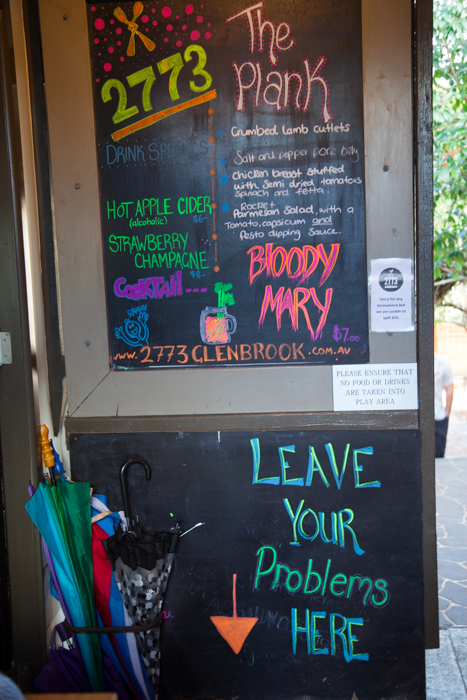 2773
DRINK SPECIALS
HOT APPLE CIDER
(alcoholic) $6-
STRAWBERRY
CHAMPAGNE
$8-
COCKTAIL ...
The
Plank
Crumbed lamb cutlets
Salt and pepper pork belly
Chicken breast stuffed
with semi dried tomatoes
spinach and fetta.
Rocket
Parmesan Salad, with a
Tomato, capsicum and
Pesto dipping sauce..
BLOODY
MARY
$7.00
www.2773GLENBROOK.com.au
2773
Sorry for any
inconvenience but
we are unable to
split bills.
PLEASE ENSURE THAT
NO FOOD OR DRINKS
ARE TAKEN INTO
PLAY AREA
LEAVE
YOUR
Problems
HERE